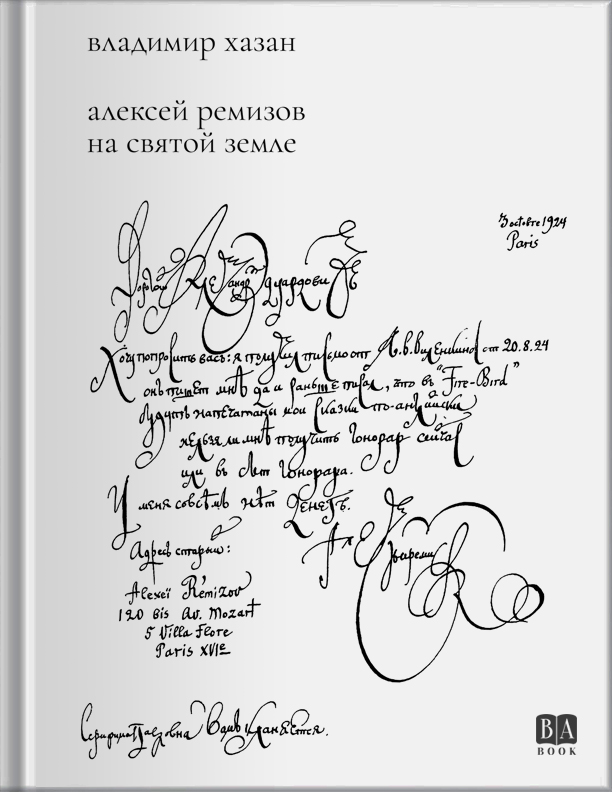 владимир хазан
алексей ремизов
на святой земле
3 octobre 1924
Paris
Дорогой Александр Эдуардович
Хочу попросить васъ: я получил письмо от А.В.Виленкина от 20.8.24
онъ пишет мнѣ да и раньше писал, что въ "Fire-Bird"
будутъ напечатаны мои сказки по-английски
нельзя ли мнѣ получить гонорар сейчас
или въ счет гонорара.
У меня совсѣмъ нѣт денегъ.
Алексѣй Ремизов
Адресъ старый:
Alexeï Rémizov
120 bis Av. Mozart
5 Villa Flore
Paris XVIe
Серафима Павловна Вамъ кланяется.
BA
BOOK